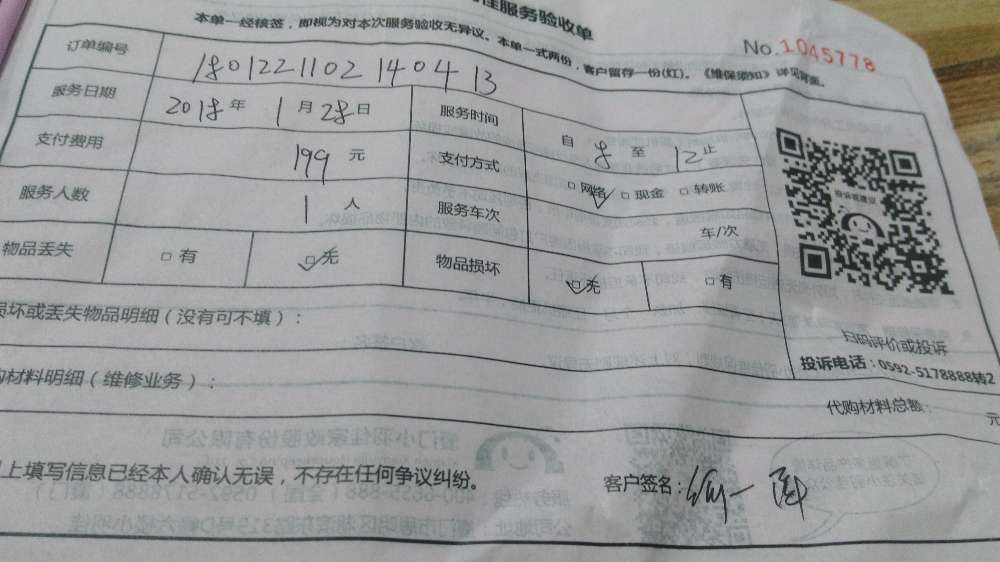 服务验收单
本单一经核签，即视为对本次服务验收无异议。本单一式两份，客户留存一份(红)。《维保须知》详见背面。
No.1045778
订单编号 180122110214 04 13
服务日期 2018年 1月28日 服务时间 自 8 至 12 止
支付费用 199 元 支付方式 □网络 □现金 □转账
服务人数 1 人 服务车次 车/次
物品丢失 □有 □无 物品损坏 □无 □有
投诉或建议
扫码评价或投诉
投诉电话：0592-5178888转2
坏或丢失物品明细（没有可不填）：
购材料明细（维修业务）：
代购材料总额： 元
上填写信息已经本人确认无误，不存在任何争议纠纷。
客户签名：